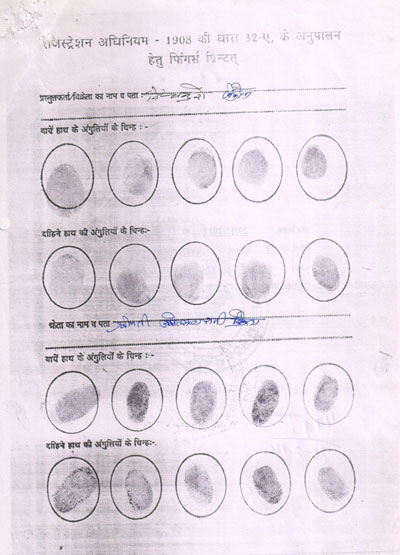 रजिस्ट्रेशन अधिनियम - 1908 की धारा 32-ए, के अनुपालन
हेतु फिंगर्स प्रिन्टस्
प्रस्तुतकर्ता/विक्रेता का नाम व पता
बायें हाथ के अंगुलियों के चिन्ह : -
दाहिने हाथ की अंगुलियों के चिन्ह:-
क्रेता का नाम व पता श्रीमती
बायें हाथ के अंगुलियों के चिन्ह : -
दाहिने हाथ की अंगुलियों के चिन्ह:-